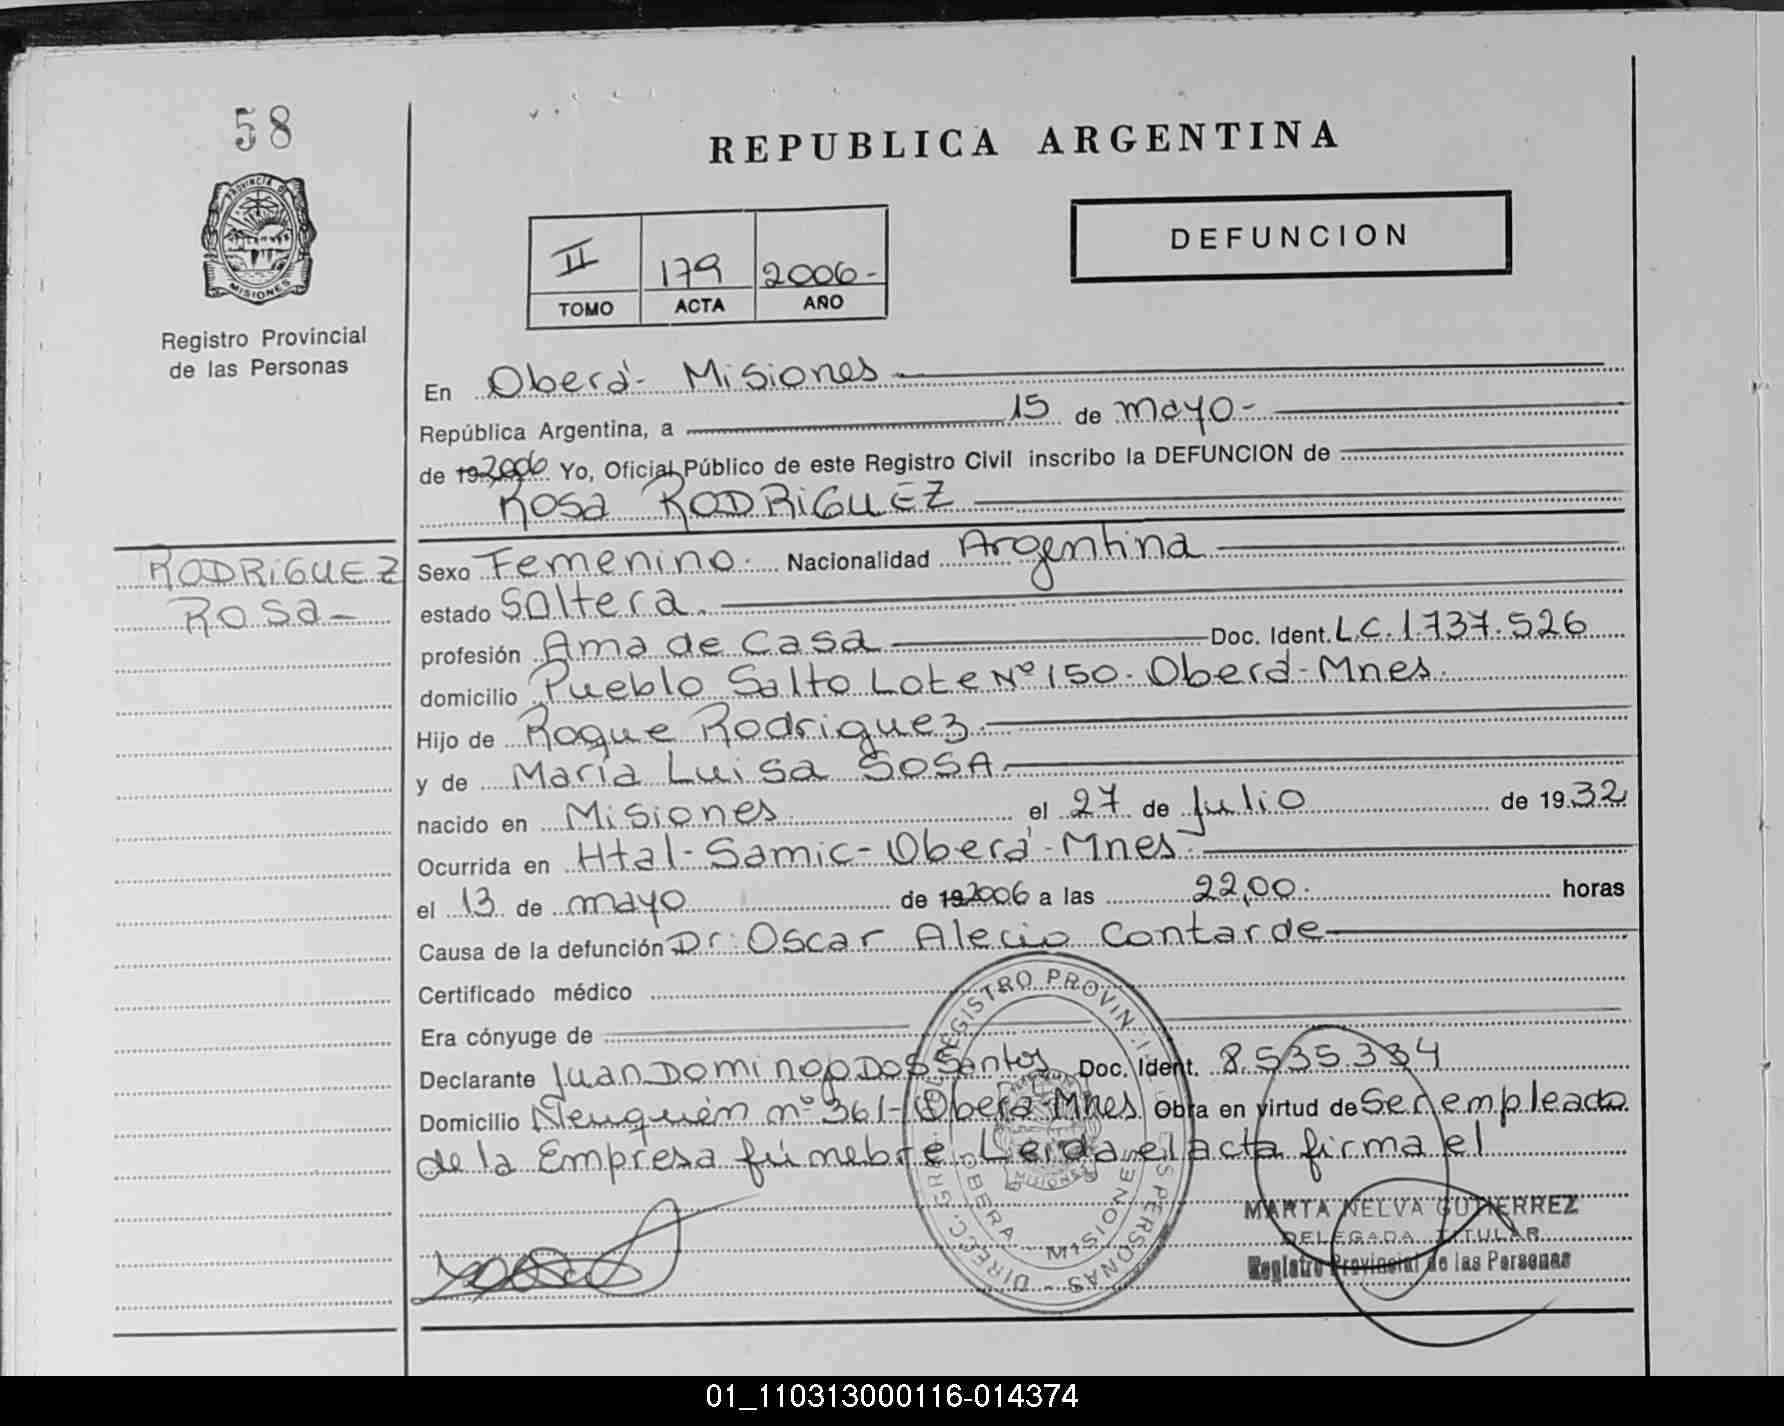 58
PROVINCIA DE
MISIONES
Registro Provincial
de las Personas
REPUBLICA ARGENTINA
II 179 2006-
TOMO ACTA AÑO
DEFUNCION
En Oberá- Misiones
República Argentina, a 15 de mayo-
de 19 2006 Yo, Oficial Público de este Registro Civil inscribo la DEFUNCION de
Rosa RODRIGUEZ
RODRIGUEZ
Rosa-
Sexo Femenino. Nacionalidad Argentina
estado Soltera.
profesión Ama de Casa Doc. Ident. L.C. 1.737.526
domicilio Pueblo Salto Lote Nº 150. Oberá-Mnes.
Hijo de Roque Rodriguez.
y de María Luisa SOSA.
nacido en Misiones el 27 de Julio de 1932
Ocurrida en Htal-Samic-Oberá-Mnes.
el 13 de mayo de 19 2006 a las 22,00. horas
Causa de la defunción Dr: Oscar Alecio Contarde
Certificado médico
Era cónyuge de
Declarante Juan Domingo Dos Santos Doc. Ident. 8.535.334
Domicilio Neuquén nº 361-Oberá-Mnes. Obra en virtud de Ser empleado
de la Empresa fúnebre. Leída el acta firma el
DIRECC. GRAL. DE REGISTRO PROVIN. PERSONAS
OBERA - MISIONES
MARTA NELVA GUTIERREZ
DELEGADA TITULAR
Registro Provincial de las Personas
01_110313000116-014374